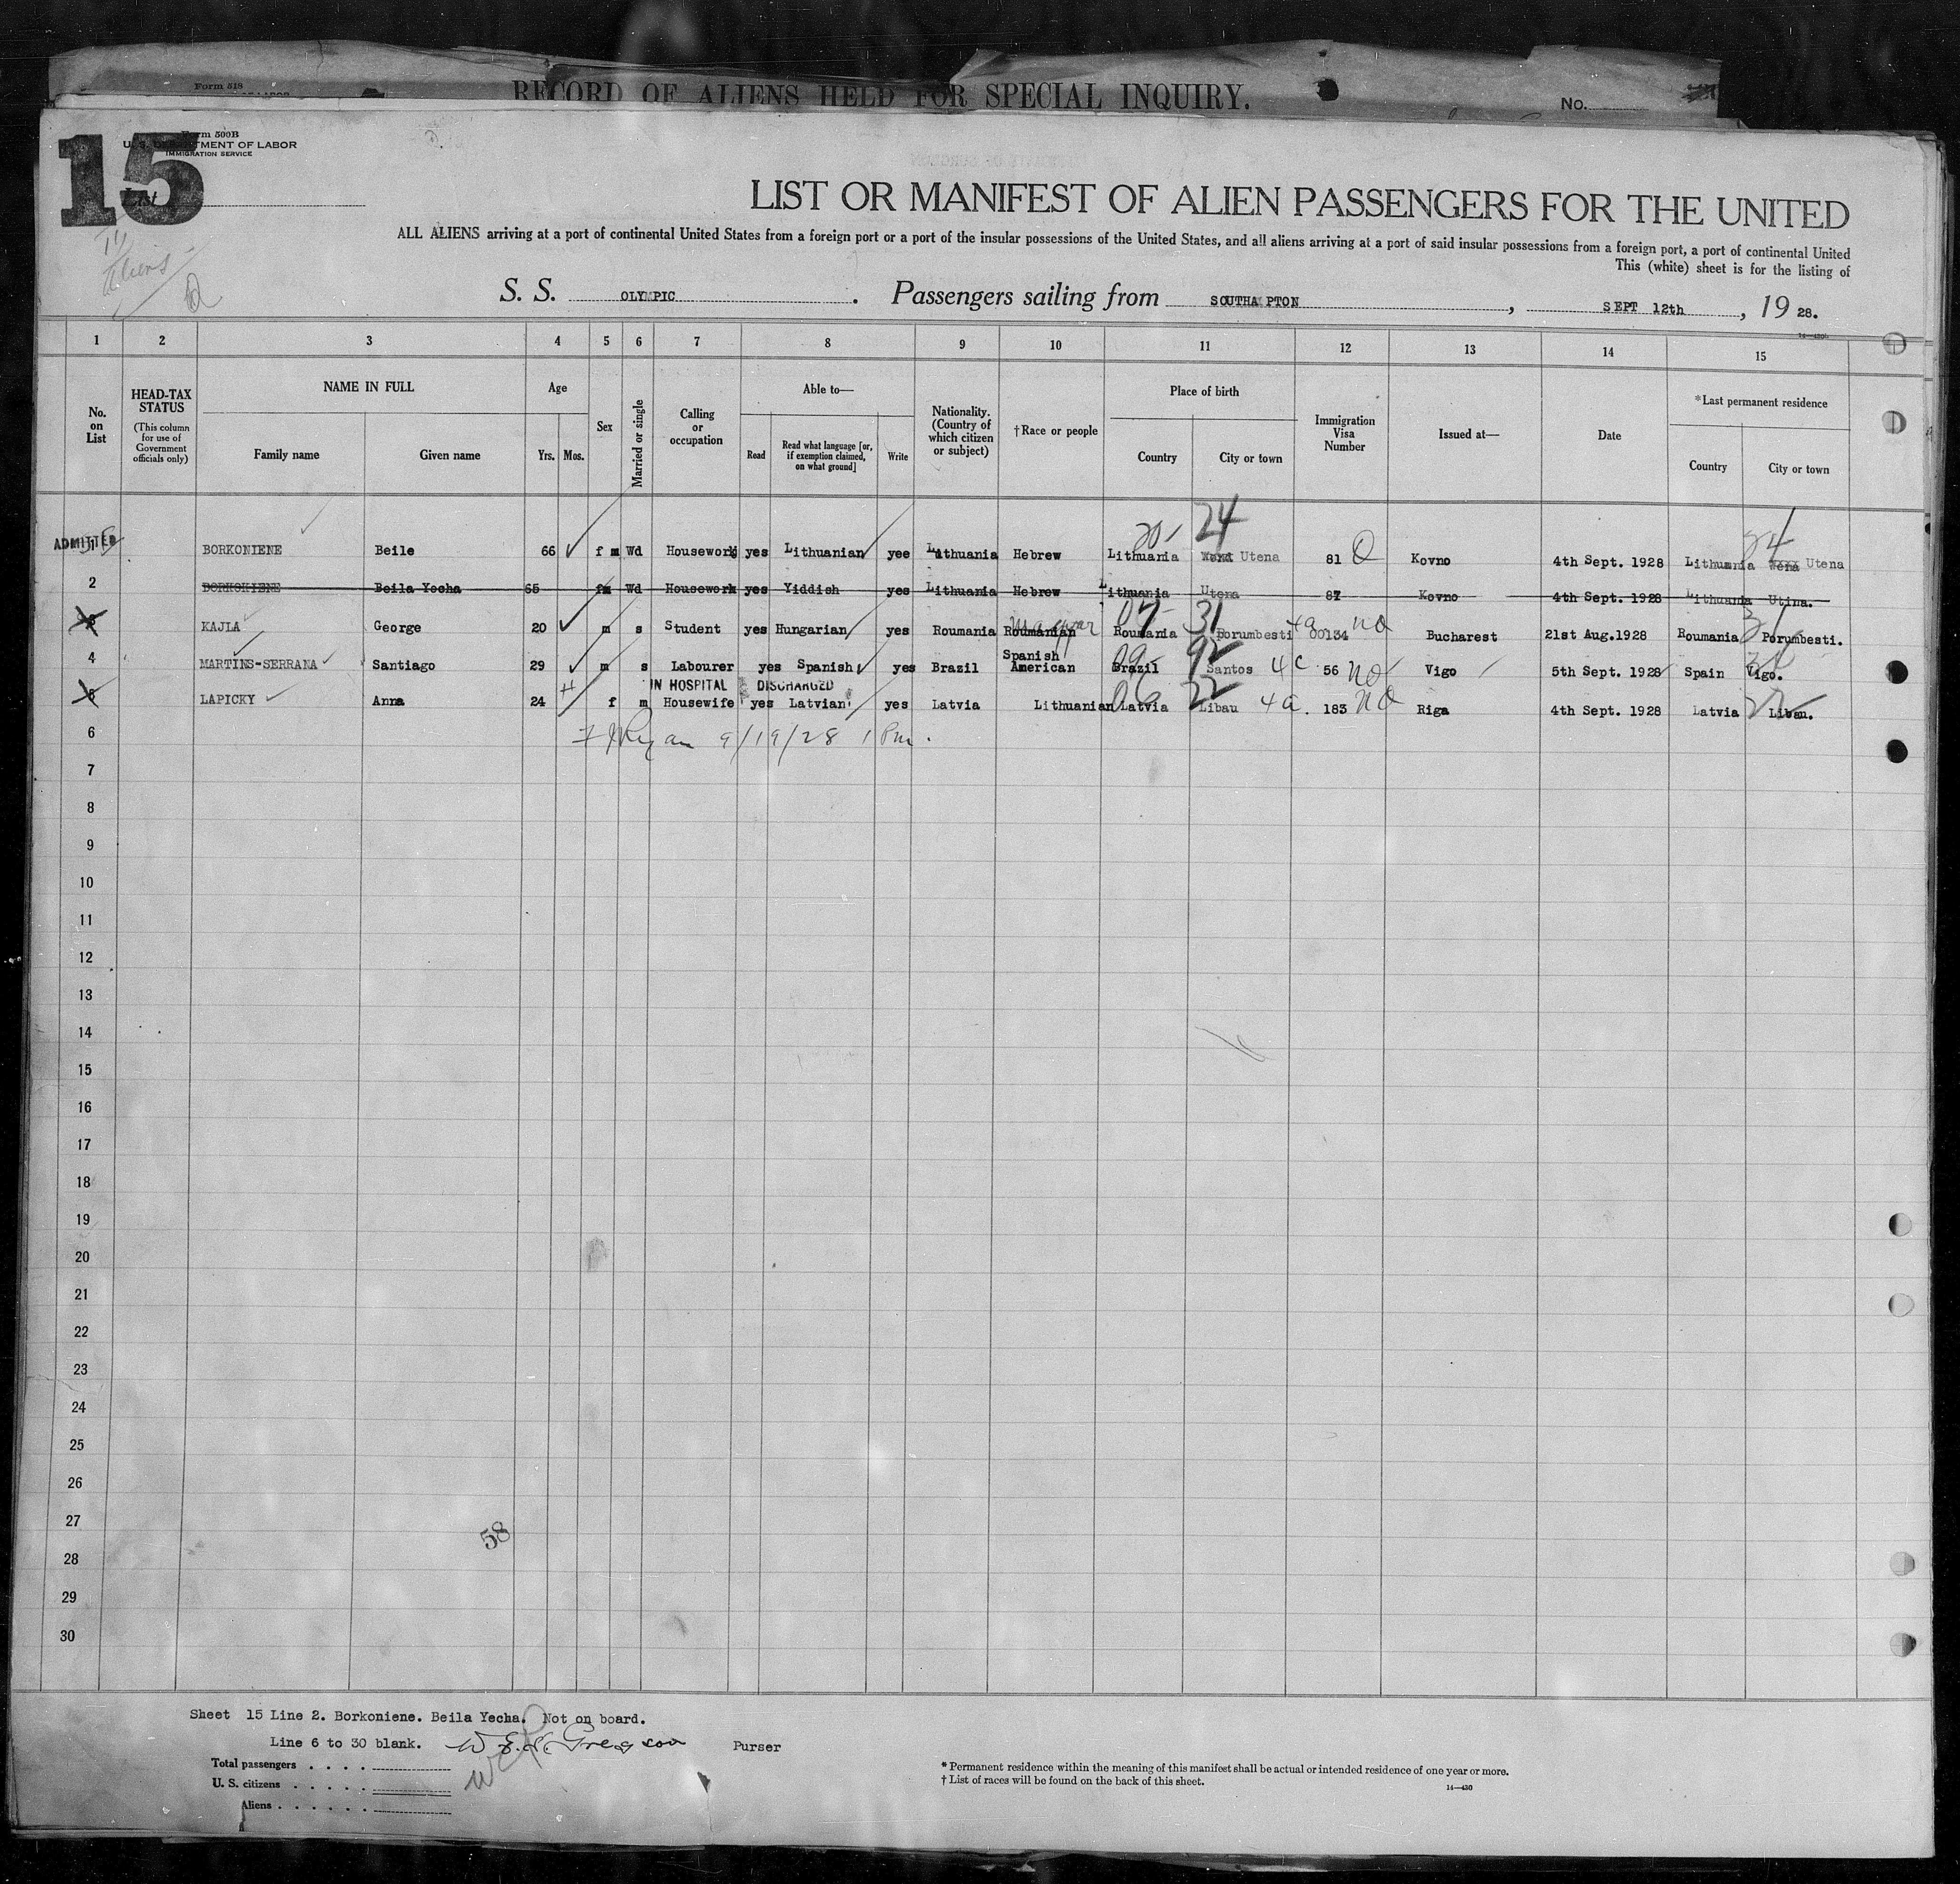 Form 518
RECORD OF ALIENS HELD FOR SPECIAL INQUIRY.
No.
15
Form 500B
U. S. DEPARTMENT OF LABOR
IMMIGRATION SERVICE
List
LIST OR MANIFEST OF ALIEN PASSENGERS FOR THE UNITED
ALL ALIENS arriving at a port of continental United States from a foreign port or a port of the insular possessions of the United States, and all aliens arriving at a port of said insular possessions from a foreign port, a port of continental United
This (white) sheet is for the listing of
Aliens
S. S. OLYMPIC. Passengers sailing from SOUTHAMPTON, SEPT 12th, 19 28.
14—430
1 2 3 4 5 6 7 8 9 10 11 12 13 14 15
No. on List
HEAD-TAX STATUS
(This column for use of Government officials only)
NAME IN FULL
Family name
Given name
Age
Yrs. Mos.
Sex
Married or single
Calling or occupation
Able to—
Read
Read what language [or, if exemption claimed, on what ground]
Write
Nationality. (Country of which citizen or subject)
†Race or people
Place of birth
Country
City or town
Immigration Visa Number
Issued at—
Date
*Last permanent residence
Country
City or town
20 24 24
ADMITTED 1 BORKONIENE Beile 66 f m Wd Housework yes Lithuanian yee Lithuania Hebrew Lithuania Utena 81 Kovno 4th Sept. 1928 Lithuania Wena Utena
2 BORKONIENE Beila Yocha 65 fm Wd Housework yes Yiddish yes Lithuania Hebrew Lithuania Utena 87 Kovno 4th Sept. 1928 Lithuania Utina.
Magyar 07 31 4a NQ 31
3 KAJLA George 20 m s Student yes Hungarian yes Roumania Roumanian Roumania Porumbesti 00134 Bucharest 21st Aug.1928 Roumania Porumbesti.
Spanish 09 92
4 MARTINS-SERRANA Santiago 29 m s Labourer yes Spanish yes Brazil American Brazil Santos 4c 56 NQ Vigo 5th Sept. 1928 Spain Vigo.
IN HOSPITAL DISCHARGED
06 22
5 LAPICKY Anna 24 f m Housewife yes Latvian yes Latvia Lithuanian Latvia Libau 4a. 183 NQ Riga 4th Sept. 1928 Latvia Libau.
6 Ryan 9/19/28 1 Pm.
7
8
9
10
11
12
13
14
15
16
17
18
19
20
21
22
23
24
25
26
27
58
28
29
30
Sheet 15 Line 2. Borkoniene. Beila Yecha. Not on board.
Line 6 to 30 blank. Gregson Purser
Total passengers . . . .
U. S. citizens . . . . .
Aliens . . . . . .
* Permanent residence within the meaning of this manifest shall be actual or intended residence of one year or more.
† List of races will be found on the back of this sheet.
14—430